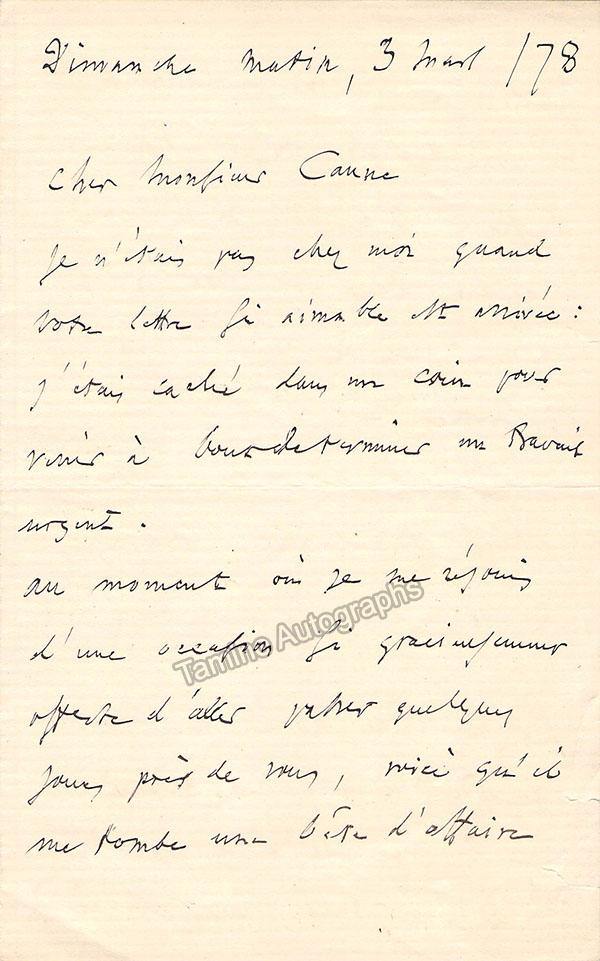 Dimanche matin, 3 Mars /78
Cher Monsieur Caune
Je n'étais pas chez moi quand
votre lettre si aimable est arrivée :
j'étais caché dans un coin pour
venir à bout de terminer un travail
urgent.
au moment où je me réjouis
d'une occasion si gracieusement
offerte d'aller passer quelques
jours près de vous, voici qu'il
me tombe une bête d'affaire
Tamino Autographs